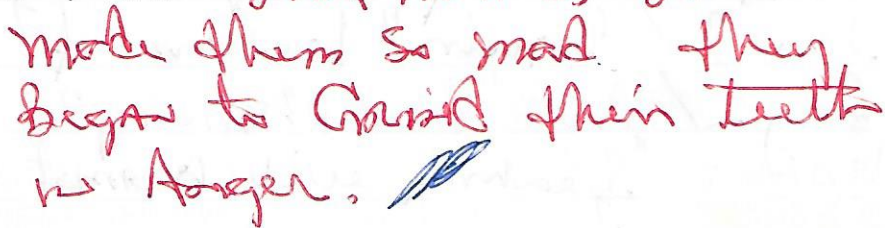 made them so mad. they
Began to Grind their Teeth
in Anger.